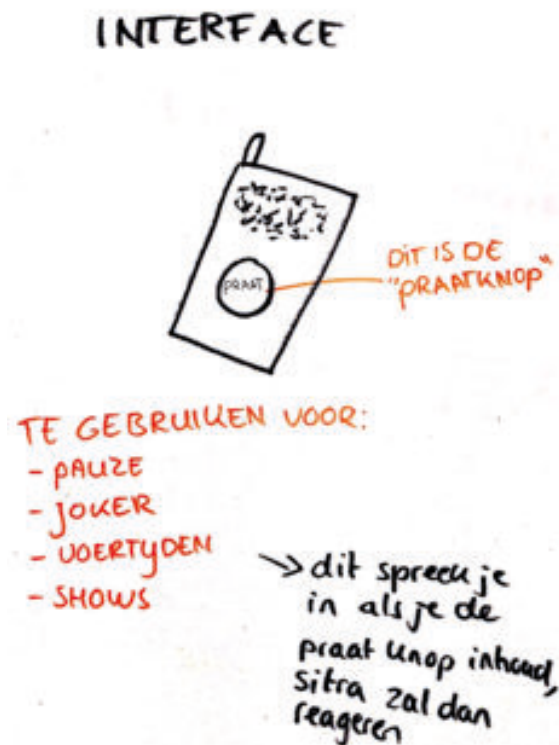 INTERFACE
PRAAT
DIT IS DE
"PRAATKNOP"
TE GEBRUIKEN VOOR:
- PAUZE
- JOKER
- VOERTIJDEN
- SHOWS
→ dit spreek je
in als je de
praat knop inhoud,
sitra zal dan
reageren